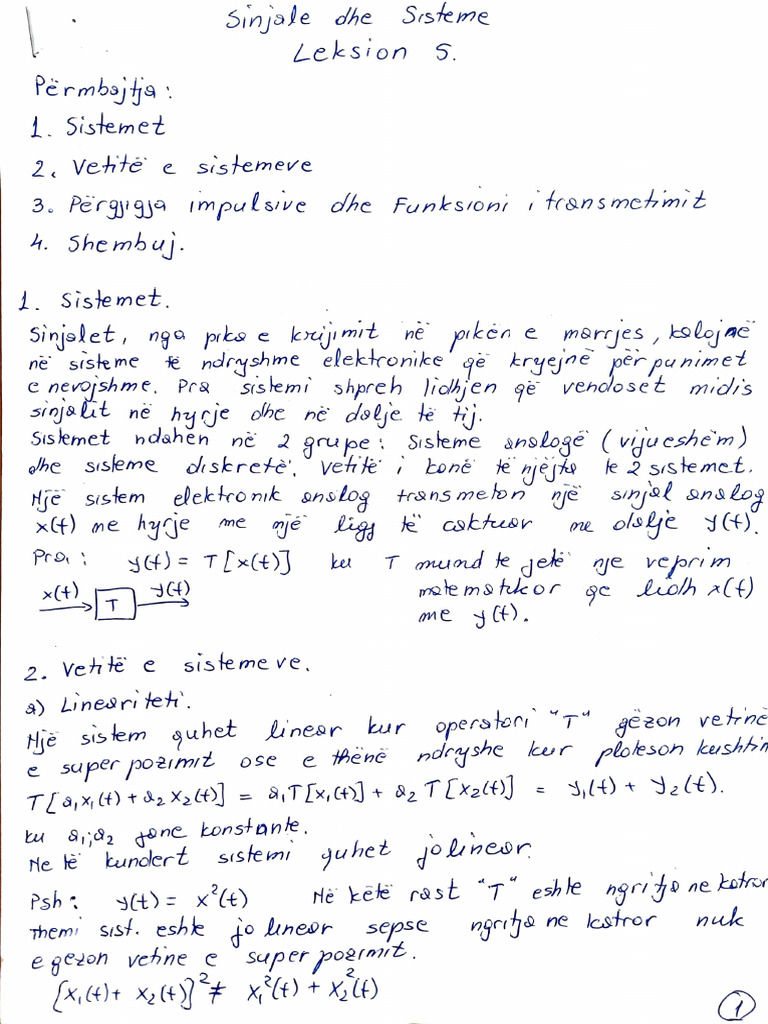 Sinjale dhe Sisteme
Leksion 5.
Përmbajtja:
1. Sistemet
2. Vetitë e sistemeve
3. Përgjigja impulsive dhe Funksioni i transmetimit
4. Shembuj.
1. Sistemet.
Sinjalet, nga pika e krijimit në pikën e marrjes, kalojnë
në sisteme të ndryshme elektronike që kryejnë përpunimet
e nevojshme. Pra sistemi shpreh lidhjen që vendoset midis
sinjalit në hyrje dhe në dalje të tij.
Sistemet ndahen në 2 grupe: Sisteme analogë (vijueshëm)
dhe sisteme diskretë. Vetitë i kanë të njëjta te 2 sistemet.
Një sistem elektronik analog transmeton një sinjal analog
x(t) me hyrje me një ligj të caktuar me dalje y(t).
Pra, : y(t) = T[x(t)] ku T mund te jetë nje veprim
x(t) T y(t) matematikor qe lidh x(t)
me y(t).
2. Vetitë e sistemeve.
a) Lineariteti.
Një sistem quhet linear kur operatori "T" gëzon vetinë
e super pozimit ose e thënë ndryshe kur ploteson kushtin
T[a₁x₁(t) + a₂x₂(t)] = a₁T[x₁(t)] + a₂T[x₂(t)] = y₁(t) + y₂(t).
ku a₁;a₂ jane konstante.
Ne të kundert sistemi quhet jolinear.
Psh: y(t) = x²(t) Në këtë rast "T" eshte ngritja ne katror
themi sist. eshte jo linear sepse ngritja ne katror nuk
e gezon vetine e super pozimit.
[x₁(t) + x₂(t)]² ≠ x₁²(t) + x₂²(t)
1